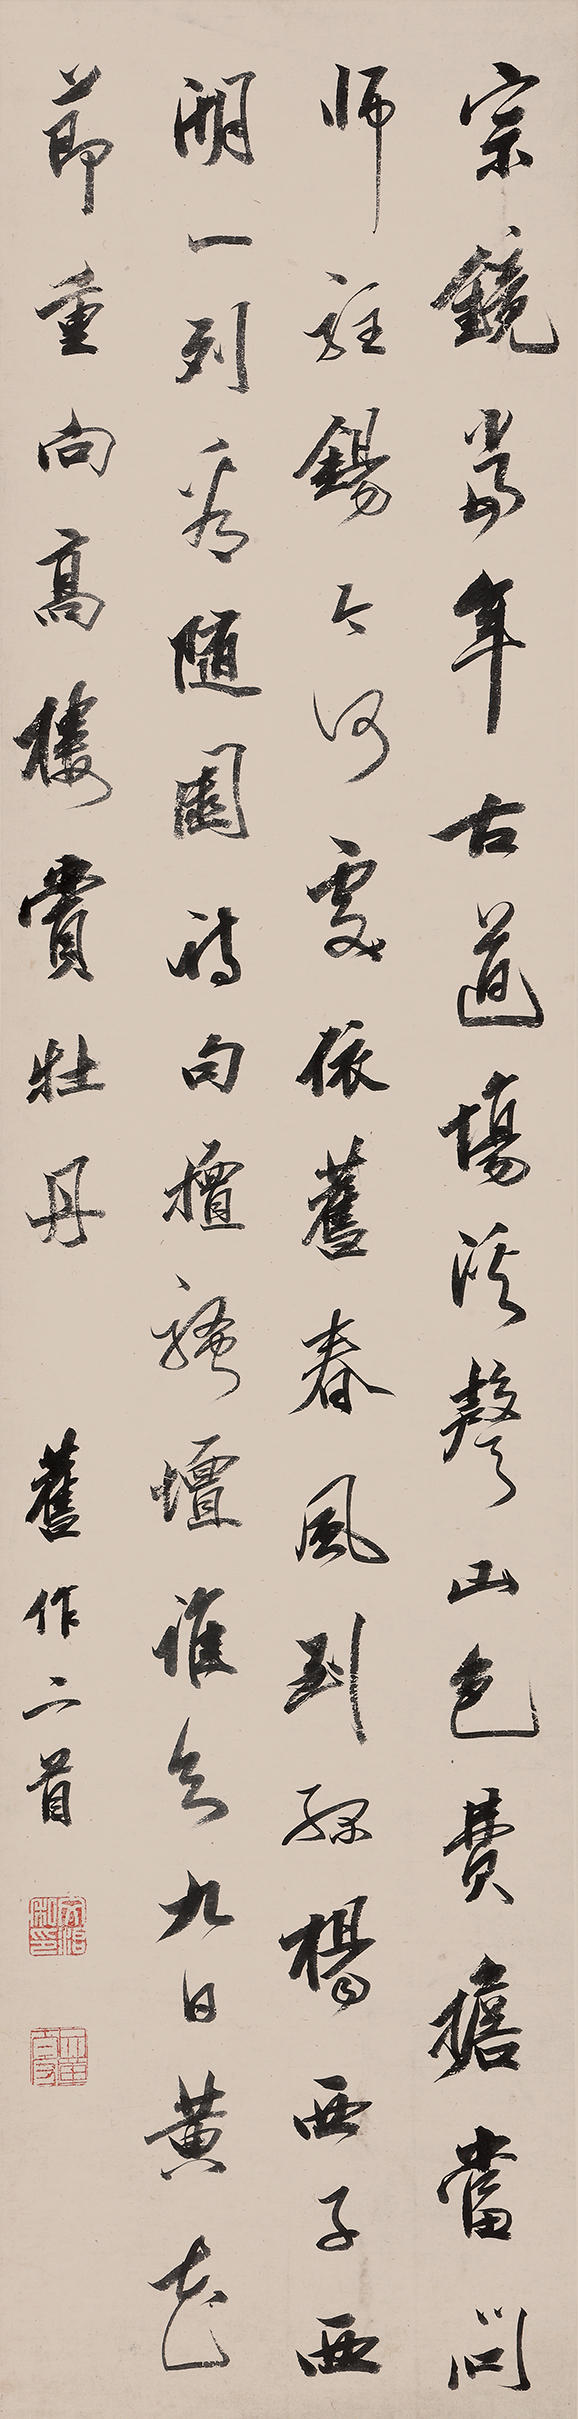 宗鏡當年古道場溪聲山色費擔當問
師駐錫今何處依舊春風到綠楊西子西
湖一列看隨園詩句擅騷壇誰知九日黃花
節重向高樓賞牡丹 舊作二首